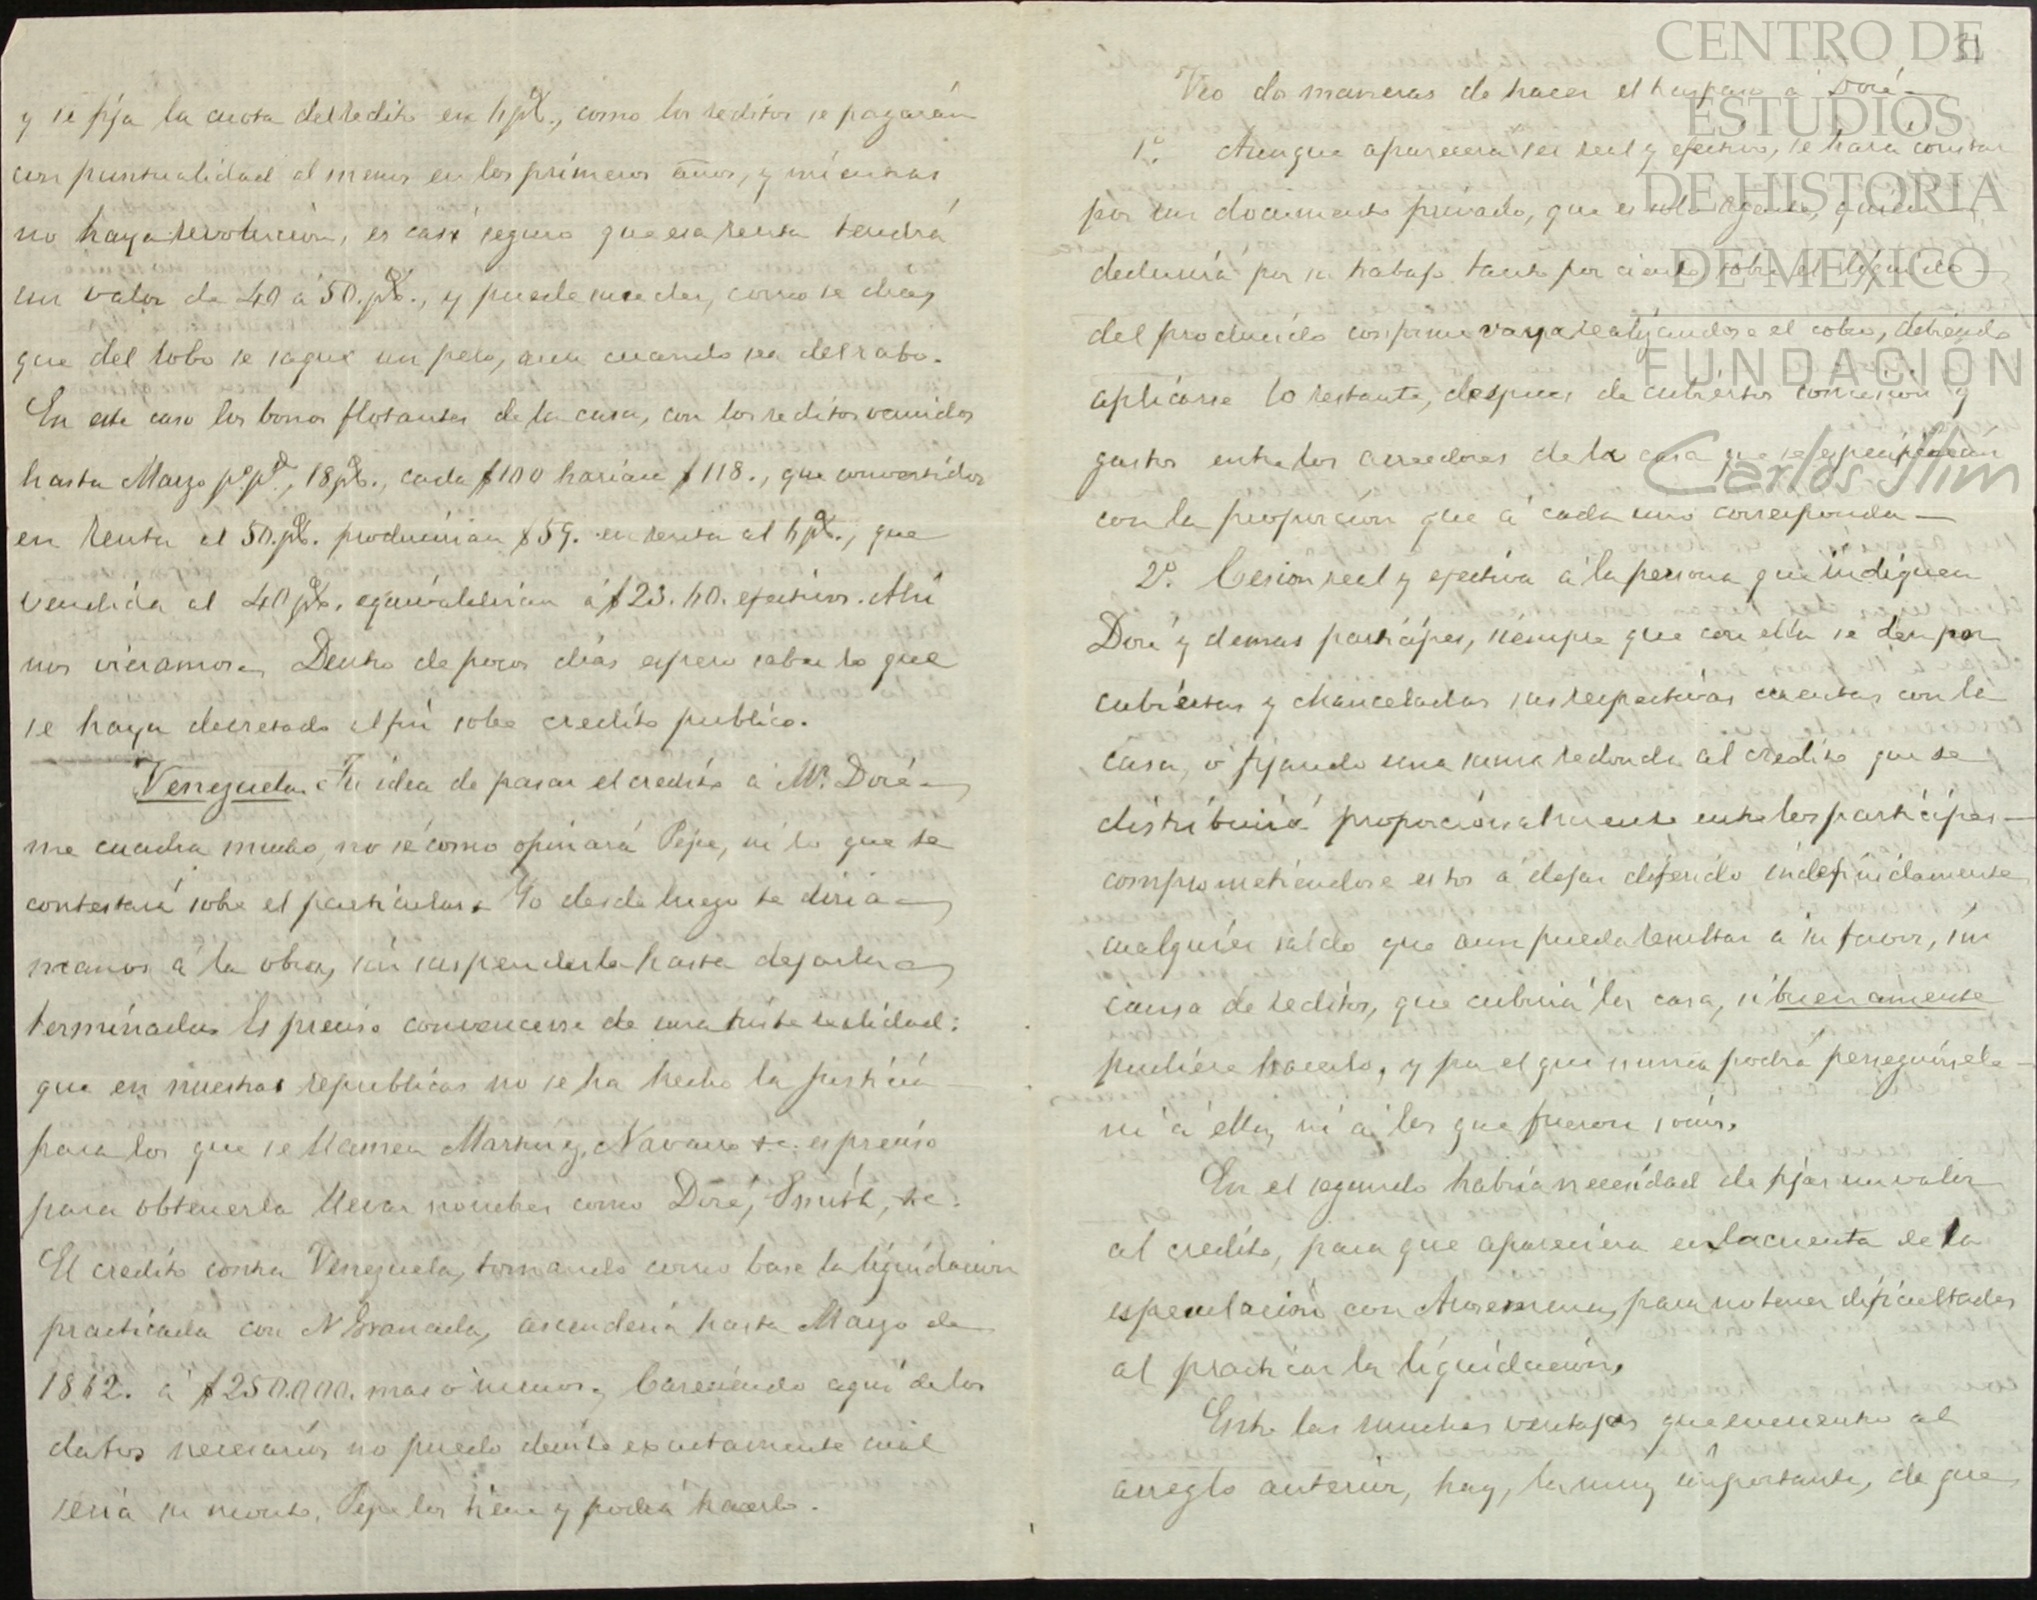 y se fija la cuota del redito en 4 p%., como los reditos se pagarán
con puntualidad al menos en los primeros años, y mientras
no haya revolucion, es casi seguro que esa renta tendrá
un valor de 40 á 50. p%., y puede suceder, como se dice,
que del lobo se saque un pelo, aun cuando sea del rabo.
En este caso los bonos flotantes de la casa, con los reditos vencidos
hasta Marzo pº pdº, 18 p%., cada $100 harian $118., que convertidos
en renta al 50. p%. producirian $59. en renta al 4 p%., que
vendida al 40 p%. equivaldrian á $23.60. efectivos. Ahi
nos vieramos. Dentro de pocos dias espero saber lo que
se haya decretado al fin sobre credito publico.
Venezuela. Tu idea de pasar el credito á Mr. Doré
me cuadra mucho, no sé como opinará Pepe, ni lo que te
contestará sobre el particular. Yo desde luego te diria
manos á la obra, sin suspenderla hasta dejarla
terminada. Es preciso convencerse de una triste realidad:
que en nuestras republicas no se ha hecho la justicia
para los que se llaman Martinez, Navarro &c. es preciso
para obtenerla llevar nombres como Doré, Smith, &c.
El credito contra Venezuela, tomando como base la liquidacion
practicada con N Granada, ascenderia hasta Marzo de
1862. á $250.000. mas o menos. Careciendo aqui de los
datos necesarios no puedo decirte exactamente cual
seria su monto. Pepe los tiene y podrá hacerlo.
Veo dos maneras de hacer el traspaso á Doré
1ª. Aunque aparecerá ser real y efectivo, se hará constar
por un documento privado, que es solo agente, quien
deduciria por su trabajo tanto por ciento sobre el liquido
del producido conforme vaya realizandose el cobro, debiendo
aplicarse lo restante, despues de cubiertos comision y
gastos entre los acreedores de la casa que se especificarán
con la proporcion que á cada uno corresponda
2ª. Cesion real y efectiva á la persona que indiquen
Doré y demas participes, siempre que con ella se den por
cubiertas y chanceladas sus respectivas cuentas con la
casa, ó fijando una suma redonda al credito que se
distribuirá proporcionalmente entre los participes
comprometiendose estos á dejar diferido indefinidamente
cualquier saldo que aun pueda resultar á su favor, sin
causa de reditos, que cubrirá la casa, si buenamente
pudiere hacerlo, y por el que nunca podrá perseguirsele
ni á ella, ni á los que fueron socios.
En el segundo habria necesidad de fijar un valor
al credito, para que apareciera en la cuenta de la
especulacion con Arosemena, para no tener dificultades
al practicar la liquidacion.
Entre las muchas ventajas que encuentro al
arreglo anterior, hay, la muy importante, de que
CENTRO DE
ESTUDIOS
DE HISTORIA
DE MEXICO
FUNDACIÓN
Carlos Slim